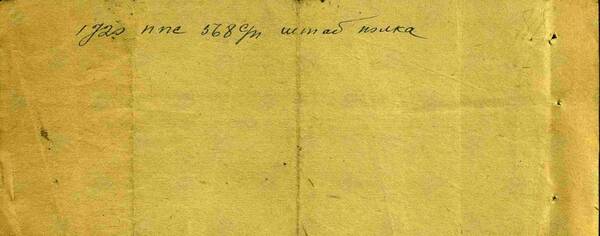 1723 ппс 568 с/п штаб полка